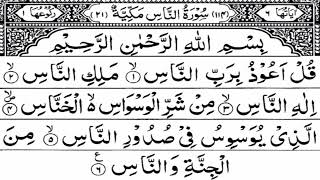 اٰيَاتُهَا ٦ (١١٤) سُوْرَةُ النَّاسِ مَكِّيَّةٌ (٢١) رُكُوْعُهَا ١
بِسْمِ اللّٰهِ الرَّحْمٰنِ الرَّحِيْمِ
قُلْ اَعُوْذُ بِرَبِّ النَّاسِ ۙ﴿١﴾ مَلِكِ النَّاسِ ۙ﴿٢﴾
اِلٰهِ النَّاسِ ۙ﴿٣﴾ مِنْ شَرِّ الْوَسْوَاسِ ۙ الْخَنَّاسِ ۪ۙ﴿٤﴾
الَّذِيْ يُوَسْوِسُ فِيْ صُدُوْرِ النَّاسِ ۙ﴿٥﴾ مِنَ
الْجِنَّةِ وَالنَّاسِ ﴿٦﴾